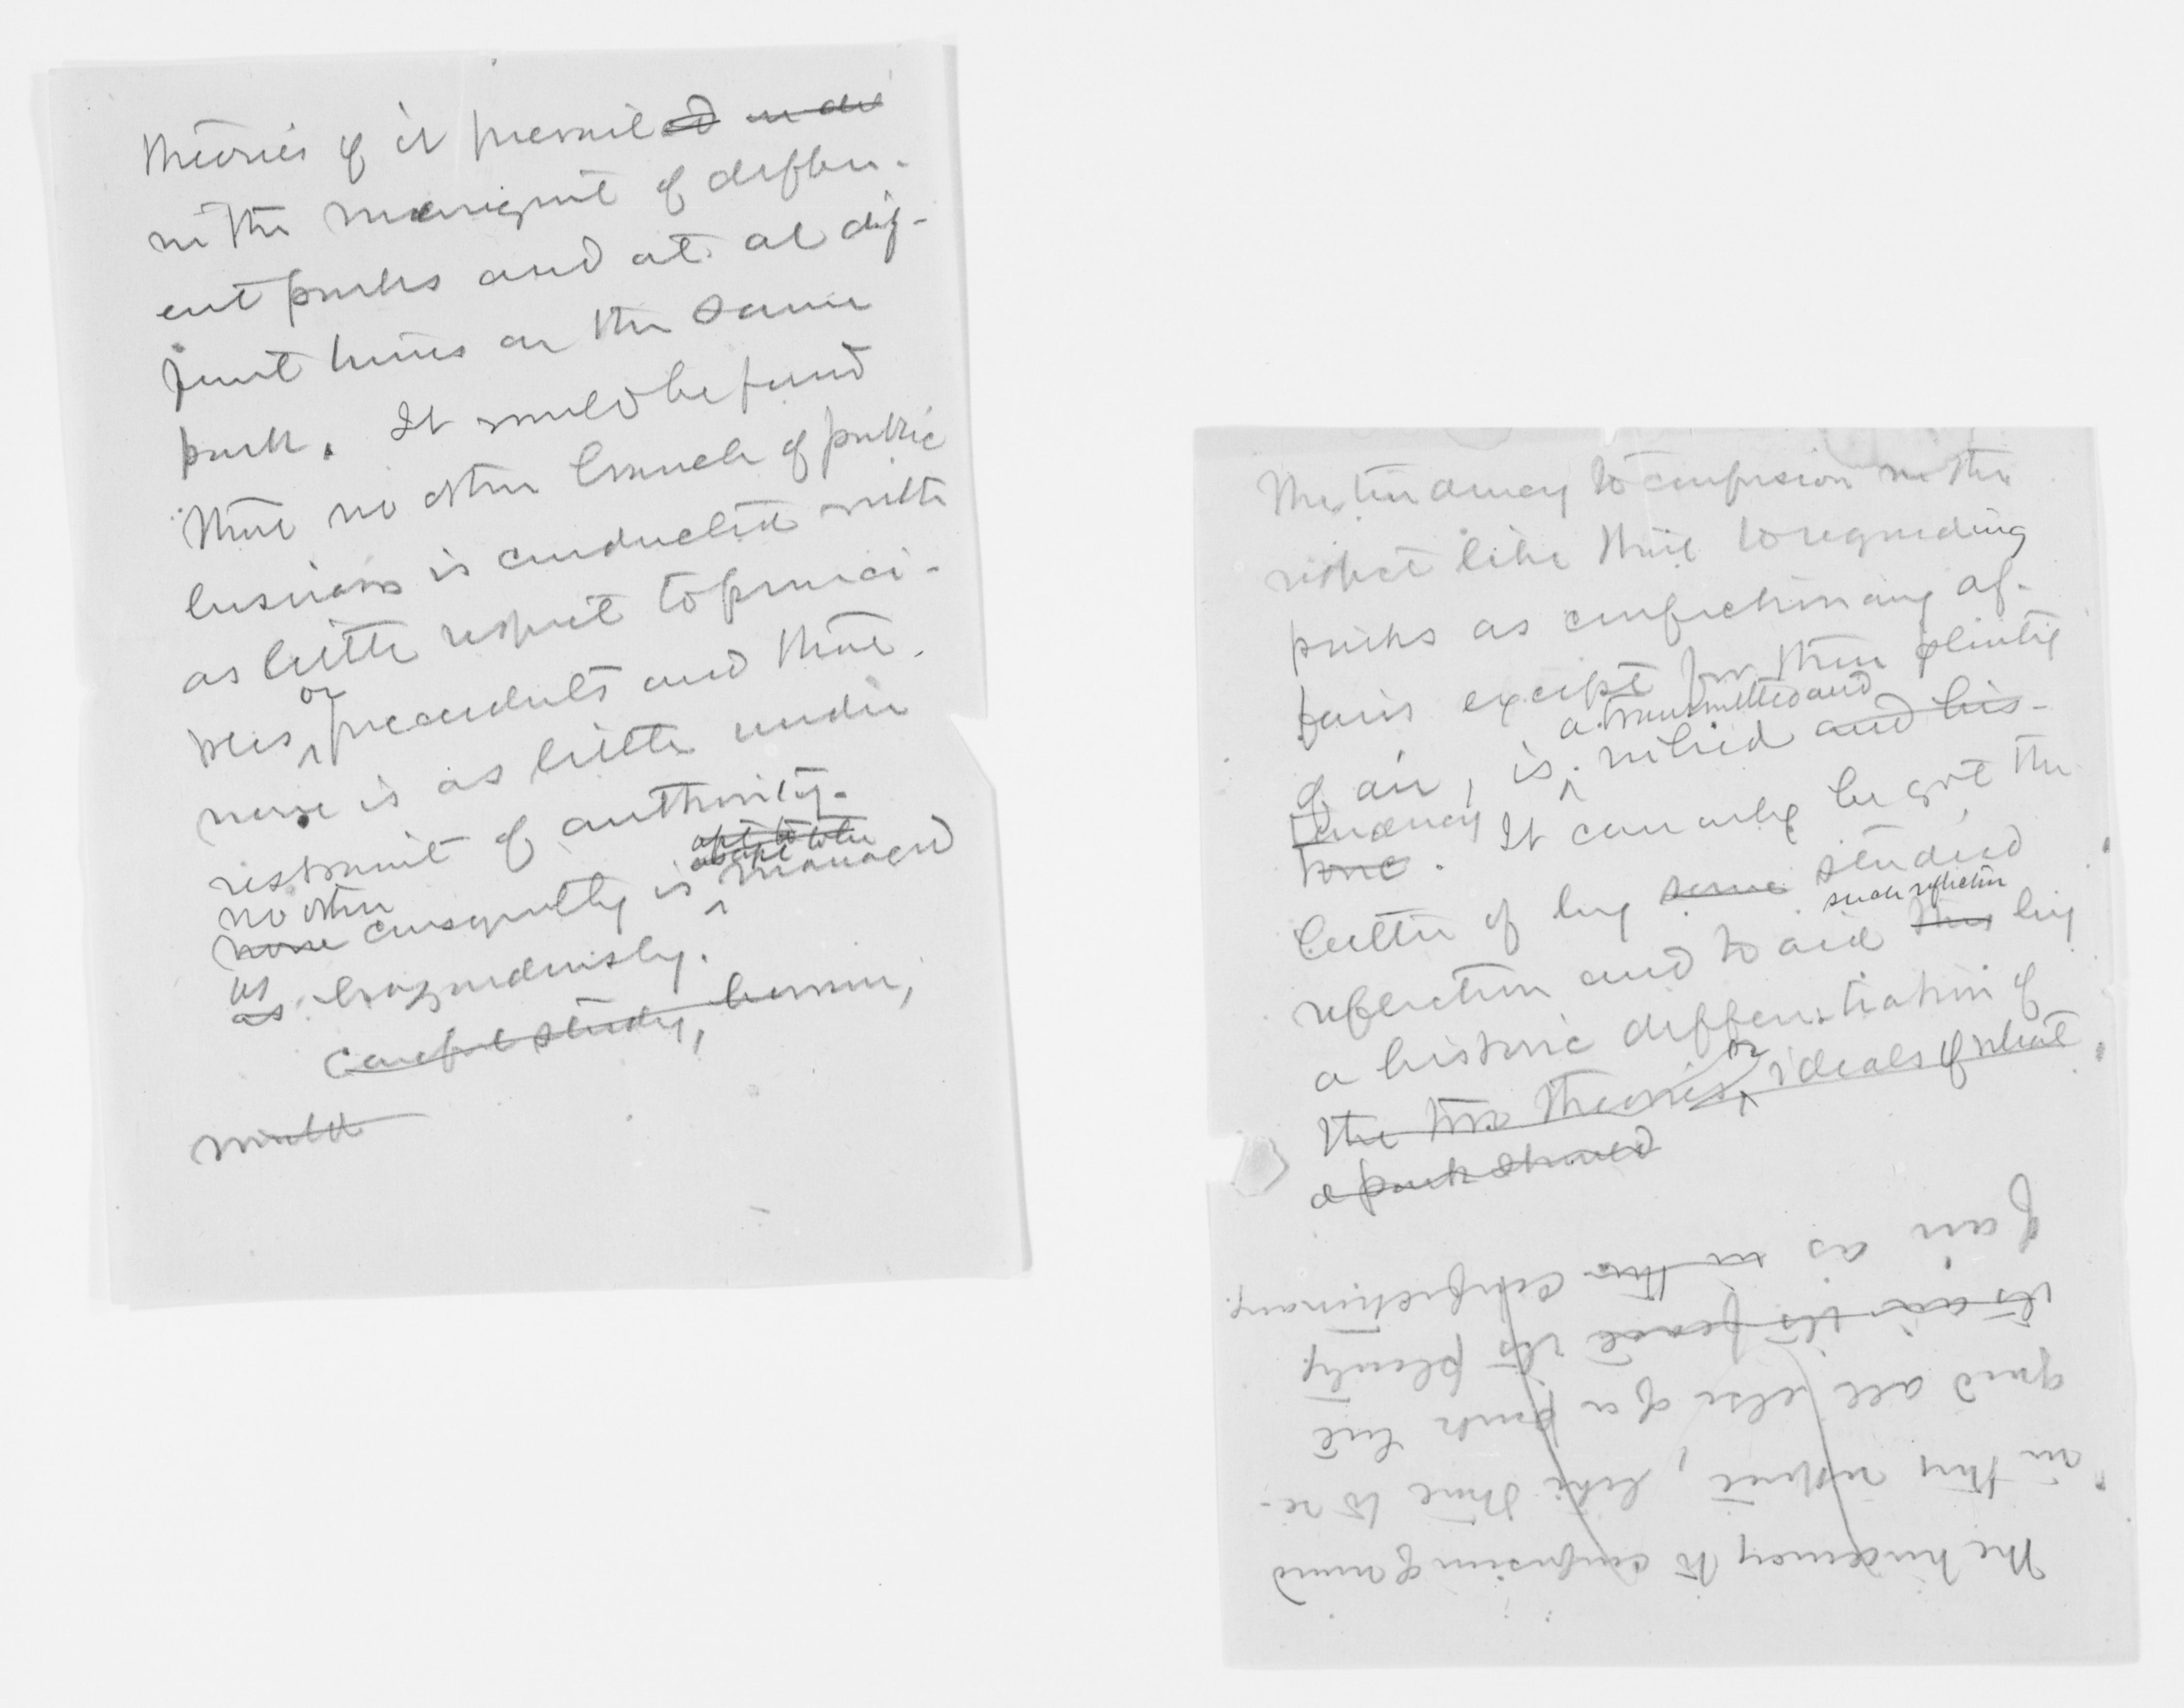 theories of it prevailed
in the management of differ-
ent parks and at at dif-
ferent times on the same
park. It would be found
that no other branch of public
business is conducted with
as little respect to princi-
ples or precedents and that
none is as little under
restraint of authority.
no other
none consequently is apt to be managed
as hazardously.
Careful study, however,
would
The tendency to confusion in this
respect like that to regarding
parks as confectionary af-
fairs except for their plenty
of air, is a transmitted and
inherited and his-
tendency It can only be got the
toric.
better of by some studied
reflection and to aid this such reflection by
a historic differentiation of
the two theories or ideals of what
a park should
The tendency to confusion of mind
in this respect, like that to re-
gard all else of a park but
its air its peace its plenty
of air as in the confectionary.